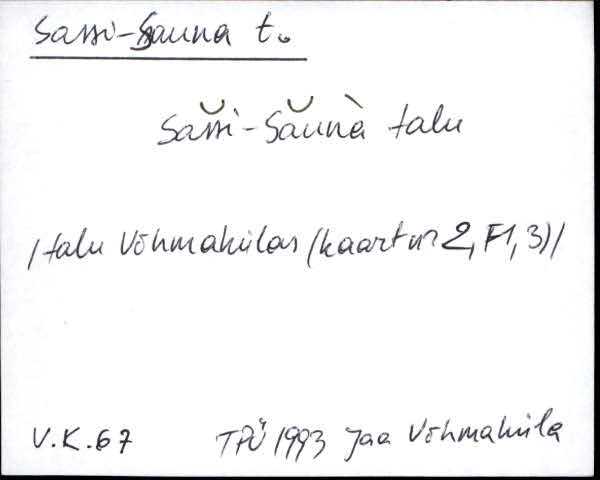 Sassi-Sauna t.
Săssi-Săunà talu
/talu Võhmakülas (kaart nr 2, F1, 3)/
V.K.67 TPÜ 1993 Jaa Võhmaküla